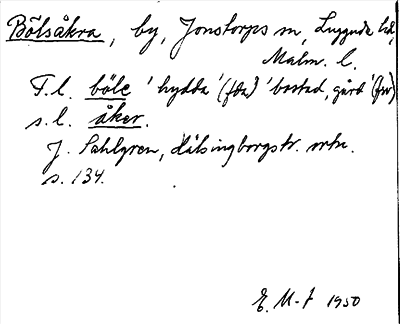 Bölsåkra, by, Jonstorps sn, Luggude hd,
Malm. l.
F. l. böle 'hydda' (fda) 'bostad, gård' (fsv)
s. l. åker.
J. Sahlgren, Hälsingborgstr. ortn.
s. 134.
E. M-f 1950